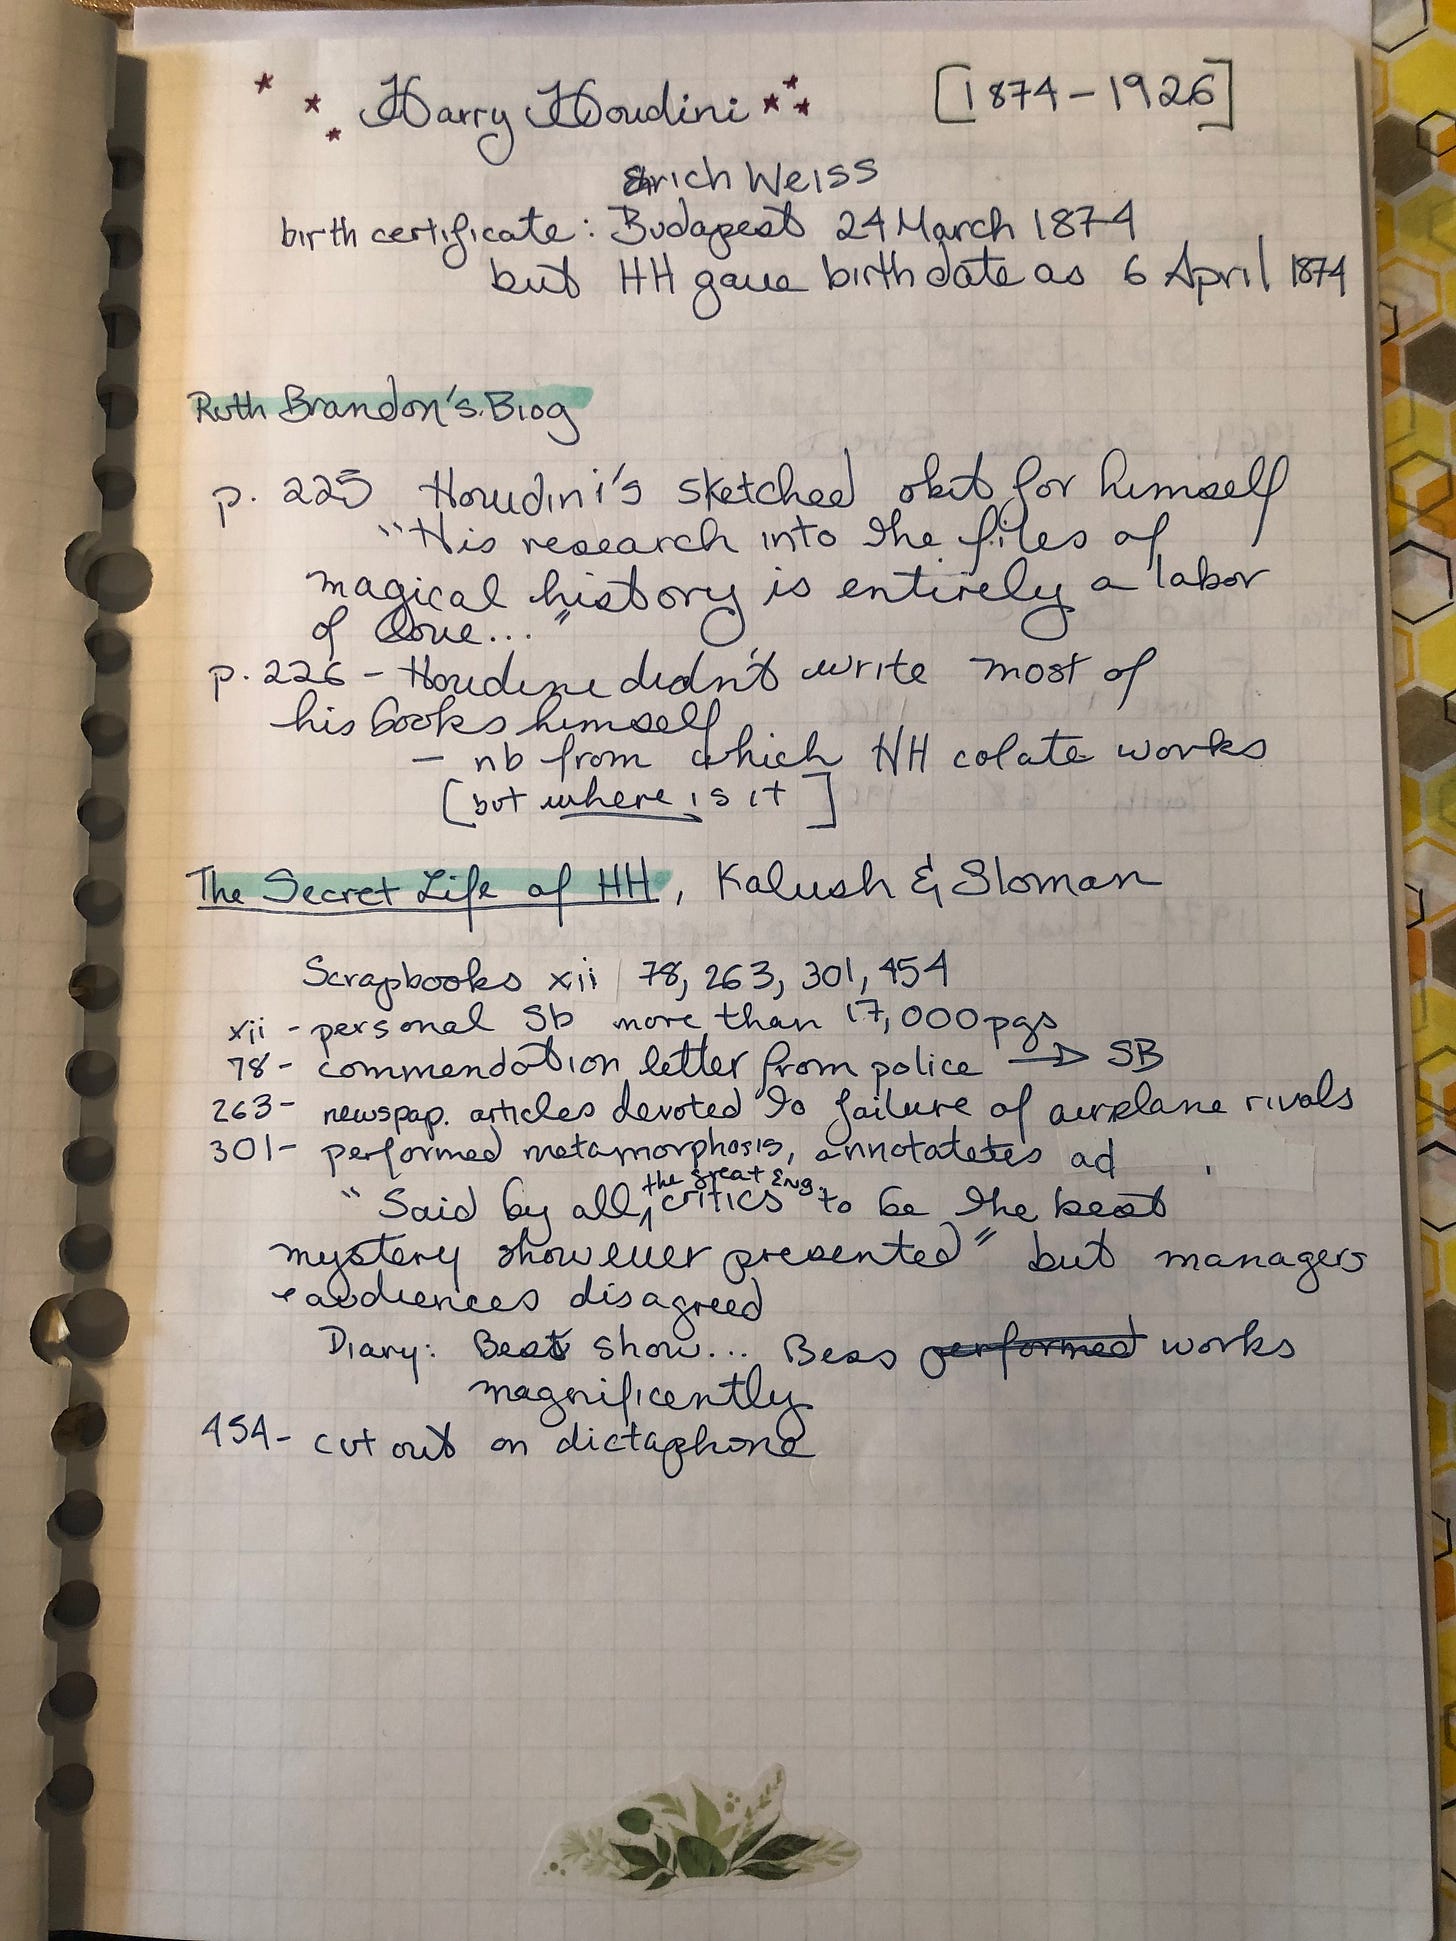 Harry Houdini [1874-1926]
Erich Weiss
birth certificate: Budapest 24 March 1874
but HH gave birthdate as 6 April 1874
Ruth Brandon's Biog
p. 225 Houdini's sketched obit for himself
"His research into the files of
magical history is entirely a labor
of love..."
p. 226 - Houdini didn't write most of
his books himself
- nb from which HH colate works
[but where is it]
The Secret Life of HH, Kalush & Sloman
Scrapbooks xii 78, 263, 301, 454
xii - personal Sb more than 17,000 pgs
78 - commendation letter from police → SB
263 - newspap. articles devoted to failure of airplane rivals
301 - performed metamorphosis, annotatetes ad
"Said by all the great Eng. critics to be the best
mystery show ever presented" but managers
+ audiences disagreed
Diary: Best show... Bess performed works
magnificently
454 - cut out on dictaphone